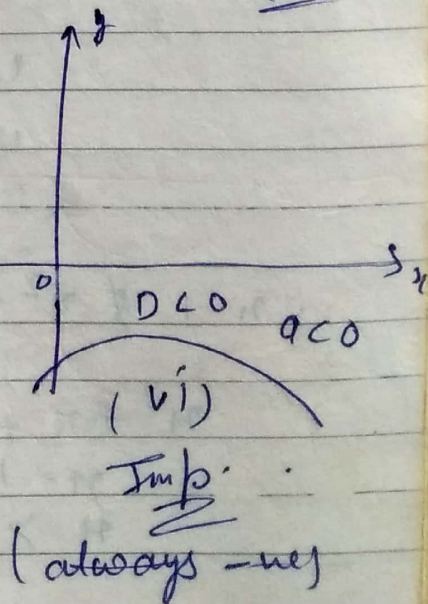 y
0
x
D < 0
a < 0
(vi)
Imp.
(always -ve)